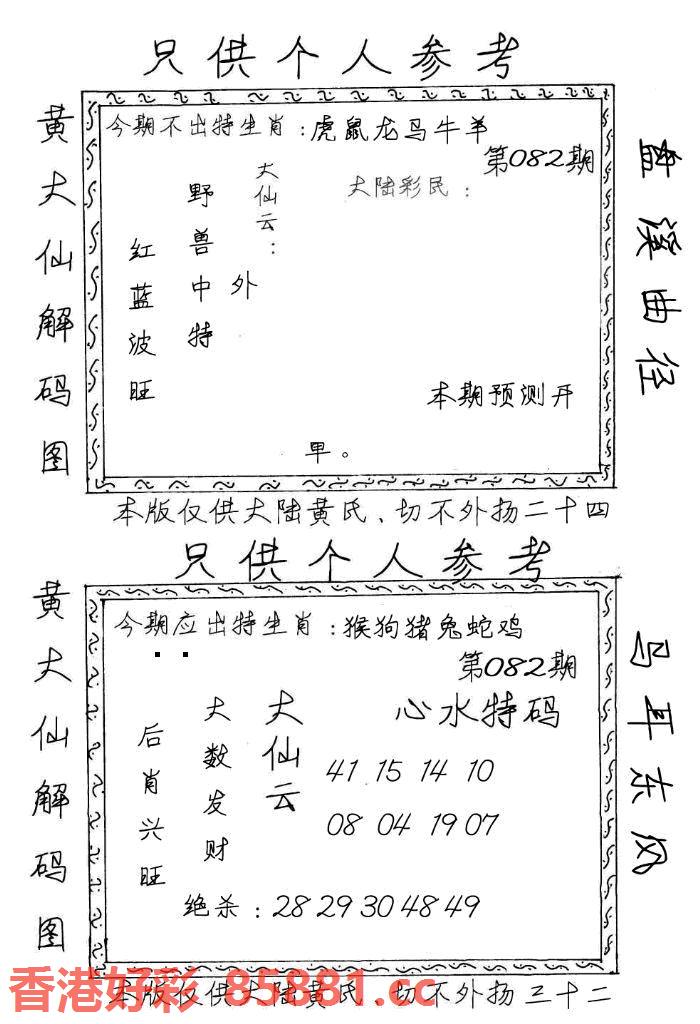 只供个人参考
黄大仙解码图
今期不出特生肖：虎鼠龙马牛羊
第082期
大仙云：
野兽中特
红蓝波旺
外
大陆彩民：
本期预测开
单。
盘溪曲径
本版仅供大陆黄氏、切不外扬二十四
只供个人参考
黄大仙解码图
今期应出特生肖：猴狗猪兔蛇鸡
第082期
大仙云
大数发财
后肖兴旺
心水特码
41 15 14 10
08 04 19 07
绝杀：28 29 30 48 49
马耳东风
本版仅供大陆黄氏、切不外扬三十二
香港好彩 85881.cc